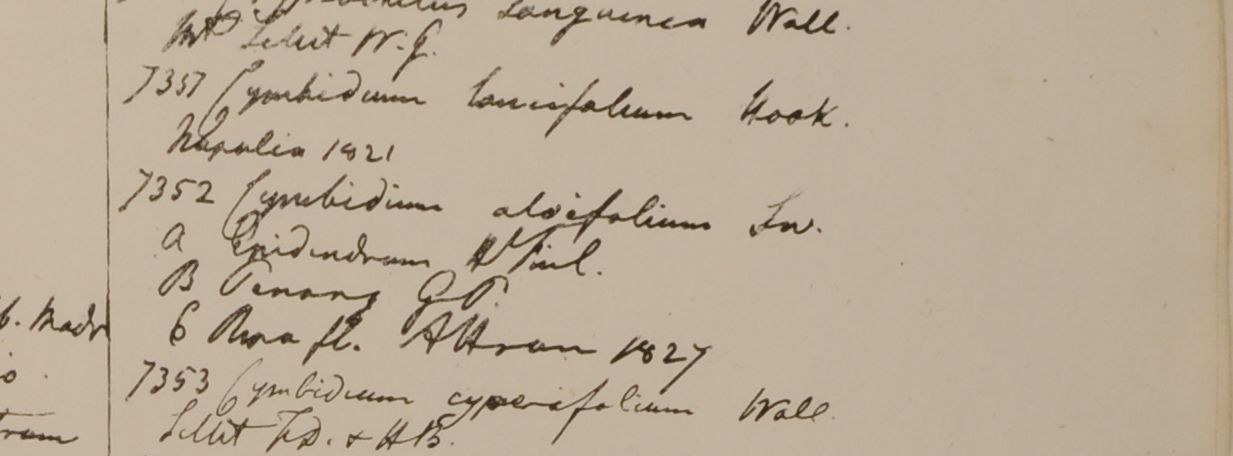 sanguinea Wall.
Mt Sillet W.G.
7351 Cymbidium lancifolium Hook.
Napalia 1821
7352 Cymbidium aloifolium Sw.
a Epidendrum H
B Penang G.P.
6 fl. Attran 1827
b. Madr
7353 Cymbidium cyperifolium Wall.
Sillet F.D. & H.B.